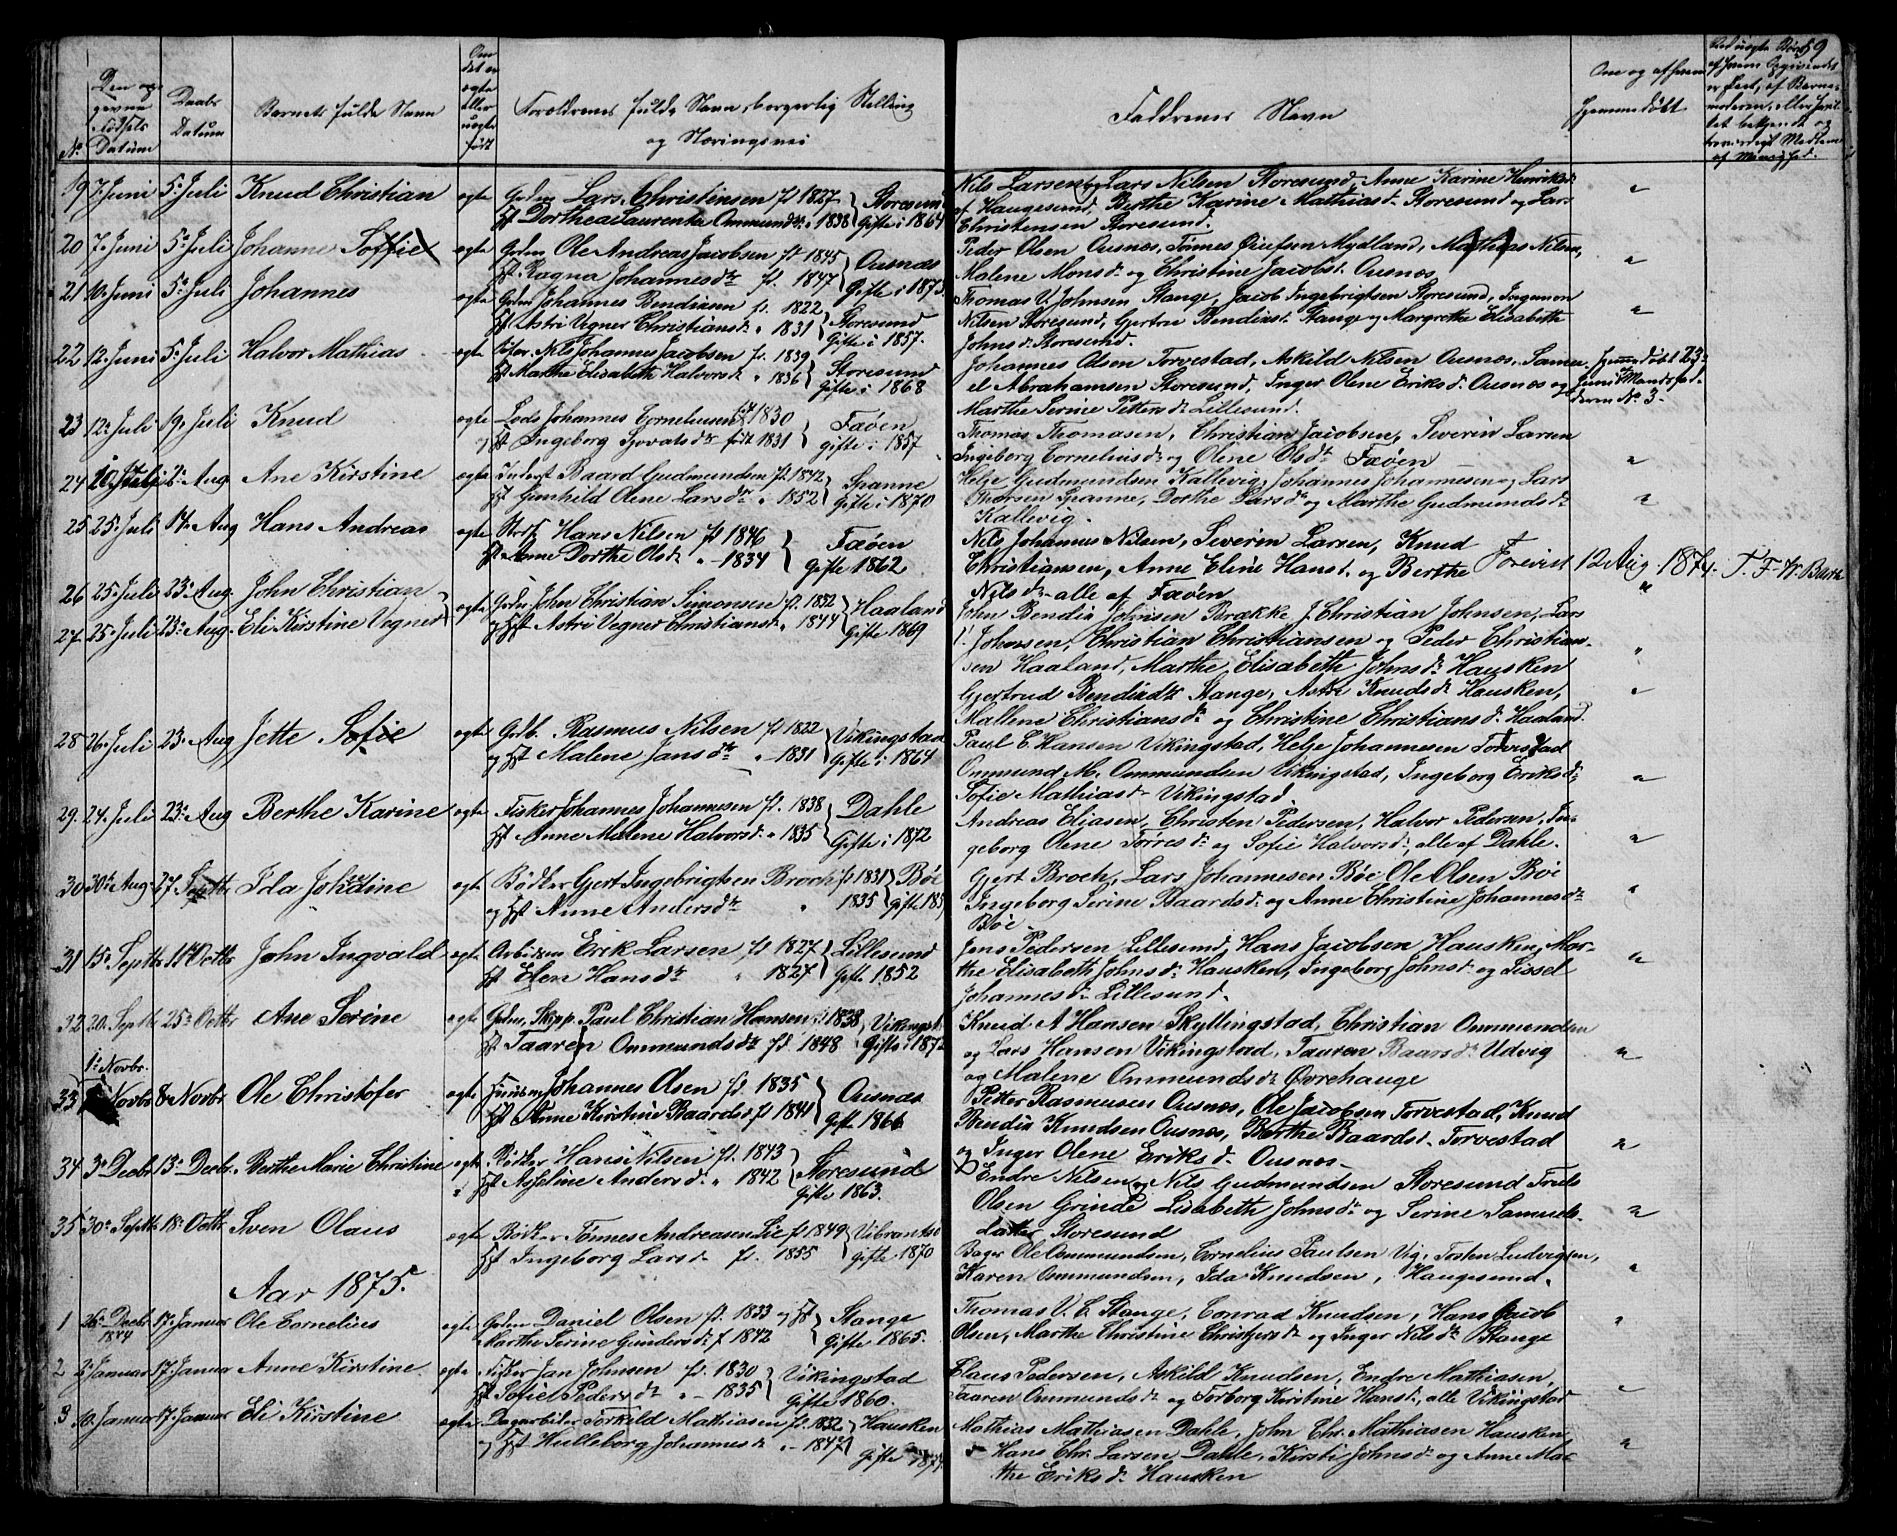 59
No
Den op-
givne
Fødsels
Datum
Daabs
Datum
Barnets fulde Navn
Om
det er
ægte
eller
uægte
født
Forældrenes fulde Navn, borgerlig Stilling
og Næringsvei
Faddrenes Navn
Om og af hvem
hjemmedøbt
19 7. Juni 5. Juli Knud Christian ægte Gaardm Lars Christensen fd 1827 Storesund
Hst Dorthea Laurentze Ommundsdr " 1838 Gifte i 1864
Nils Larsen og Lars Nilsen Storesund, Anne Karine Henriksdr
af Haugesund, Berthe Karine Mathiasdr Storesund og Lars
Christensen Storesund.
20 7. Juni 5. Juli Johanne Soffie ægte Gaardm Ole Andreas Jacobsen fd 1845 Ousnæs
Hst Ragna Johannesdtr fd. 1847 Gifte i 1873
Peder Olsen Ousnæs, Tønnes Mydland, Mathias Nilsen,
Malene Monsdr og Christine Jacobsd. Ousnæs
21 10. Juni 5. Juli Johannes ægte Johannes Bendixsen fd. 1822 Storesund
Hst Astri Vegner Christiansdr " 1831 Gifte i 1857.
Thomas V. Johnsen Stange, Jacob Ingebrigtsen Storesund, Ingemon
Nilsen Storesund, Gjertru Bendixsd. Stange og Margrethe Elisabeth
Johnsd. Storesund.
22 12. Juni 5. Juli Halvor Mathias ægte Nils Johannes Jacobsen fd. 1839 Storesund
Hst Marthe Elisabeth Halvorsdr " 1836 Gifte i 1868
Johannes Odsen Torvestad, Askild Nilsen Ousnæs, Samu-
el Abrahamsen Storesund, Inger Olene Eriksd. Ousnæs og
Marthe Serine Pettersdr Lillesund.
Hjemmedøbt 23
Juni
No 3
23 12. Juli 19. Juli Knud ægte Lods Johannes Corneliussen fd 1830 Fæøen
og Hst Ingeborg Sjovatsdtr født 1831 gifte i 1857
Thomas Thomasen, Christian Jacobsen, Severin Larsen
Ingeborg Corneliusdr og Olene Olsdtr Fæøen
24 2. Aug Ane Kirstine ægte Inderst Baard Gudmundsen fd. 1842 Spanne
Hst Gunhild Olene Larsdtr " 1852 Gifte i 1870
Helje Gudmundsen Kallevig, Johannes Johannesen og Lars
Thorsen Spanne, Dorthe Larsdr og Marthe Gudmundsdr
Kallevig.
25 25. Juli 17. Aug Hans Andreas ægte Hans Nilsen fd 1846 Fæøen
Hst Anne Dorthe Olsdr " 1834 Gifte 1862
Nils Johannes Nilsen, Severin Larsen, Knud
Christiansen, Anne Eline Hansd. og Berthe
Nilsdr alle af Fæøen
Forevist 12 Aug 1874. T. F.
26 25. Juli 23. Aug. John Christian
ægte John Christian Simonsen fd. 1832 Haaland
27 25. Juli 23. Aug. Eli Kirstine Vegner
og Hst Astri Vegner Christiansd. 1844 Gifte 1869
John Bendix Johnsen Brække J. Christian Johnsen, Lars
Johnsen, Christian Christiansen og Peder Christian-
sen Haaland, Marthe Elisabeth Johnsdr Hausken
Gjertrud Bendixdtr Stange, Astri Knudsdr Hausken,
Mallene Christiansdr og Christine Christiansdr Haaland.
28 26. Juli 23. Aug Jette Sofie ægte Gdb. Rasmus Nilsen fd 1822 Vikingstad
og Hst Malene Jansdtr " 1831 Gifte i 1864
Paul C. Hansen Vikingstad, Helje Johannesen Torvestad
Ommund M. Ommundsen Vikingstad, Ingeborg Eriksdr
Sofie Mathiasdr Vikingstad.
29. 24. Juli 23. Aug Berthe Karine ægte Fisker Johannes Johannesen fd. 1838 Dahle
Hst Anne Malene Halvorsdr " 1835 Gifte i 1872
Andreas Eliasen, Christen Pedersen, Halvor Pedersen, In-
geborg Olene Tørresdr og Sofie Halvorsd., alle af Dahle.
30 30. Aug. 27 Septbr Ida Johadine ægte Bødker Gjert Ingebrigtsen Broch fd 1831 Bøe
og Hst Anne Andersdtr " 1835 Gifte
Gjert Broch, Lars Johannesen Bøe Ole Olsen Bøe
Ingeborg Serine Baardsdr og Anne Christine Johannesdr
Bøe
31 15. Septbr 11. Octbr John Ingvald ægte Erik Larsen fd 1827 Lillesund
Hst Elen Hansdtr " 1827 Gift 1852
Jens Pedersen Lillesund, Hans Jacobsen Hausken, Mar-
the Elisabeth Johnsdr Hausken, Ingeborg Johnsd. og Sissel
Johannesdr Lillesund.
32 20. Septbr 25. Octbr Ane Serine ægte Gdm, Skipp. Paul Christian Hansen fd 1838 Vikingst
Hst Taaren Ommundsdtr fd 1848 Gifte i 1872
Knud A Hansen Skyllingstad, Christian Ommundsen
og Lars Hansen Vikingstad, Taaren Baarsdr Udvig
og Malene Ommundsdr Øvrehauge
1. Novbr.
33 Novbr 8. Novbr Ole Christofer ægte Johannes Olsen fd. 1835 Ousnæs
Hst Anne Kirstine Baardsd fd 1841 Gifte 1866
Petter Rasmussen Ousnæs, Ole Jacobsen Torvestad, Knud
Bendix Knudsen Ousnæs, Berthe Baardsd. Torvestad
og Inger Olene Eriksdr Ousnæs
34 3. Decbr 13. Decbr. Berthe Marie Christine ægte Bødker Hans Nilsen fd. 1843 Storesund
Hst Asseline Andersd. " 1842 Gifte 1863.
Endre Nilsen og Nils Gudmundsen Storesund Truls
Olsen Grinde Lisabeth Johnsdr og Serine Samuels-
dater Storesund
35 30. Septbr 18. Octbr Sven Olaus ægte Bødker Tønnes Andreasen Lie fd 1849 Vibrantsø
Hst Ingeborg Larsdr fd. 1855 gifte 1870
Bager Ole Ommundsen, Cornelius Paulsen Vig, Tosten Ludvigsen,
Karen Ommundsen, Ida Knudsen, Haugesund.
Aar 1875.
1 26. Decbr 1874 17. Januar Ole Cornelius ægte Daniel Olsen fd. 1833 og Hst Stange
Marthe Serine Gundersd. f 1842 Gifte 1865.
Thomas V. E. Stange, Conrad Knudsen, Hans Jacob
Olsen, Marthe Christine Christjersdr og Inger Nilsdr Stange
2 2. Januar 17. Januar Anne Kirstine. ægte Fisker Jan Johnsen fd. 1830 Vikingstad
Hst Sofie Pedersdr " 1835 Gifte 1860.
Claus Pedersen, Askild Knudsen, Endre Mathiasen,
Taaren Ommundsdr og Torborg Kirstine Hansd., alle Vikingstad
3 10. Januar 17. Januar Eli Kirstine ægte Dagarbeider Torkild Mathiasen fd. 1832 Hausken
og Hst Hulleborg Johannesdr " 1847 Gifte
Mathias Mathiasen Dahle, John Chr. Mathiasen Hausken,
Hans Chr. Larsen Dahle, Kirsti Johnsdr og Anne Mar-
the Eriksdr Hausken